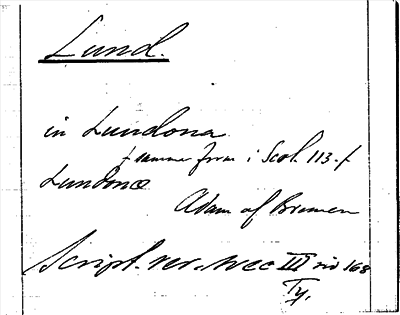 Lund.
in Lundona
(samma form i Scol. 113.)
Lundonæ
Adam af Bremen
Script. rer. svec III sid 168
Ty.